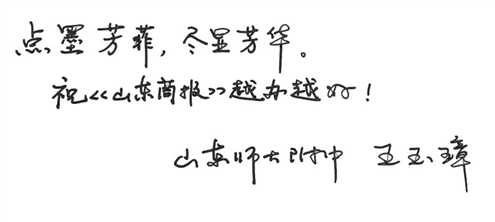 点墨芳菲，尽显芳华。
祝《山东商报》越办越好！
山东师大附中 王玉璋